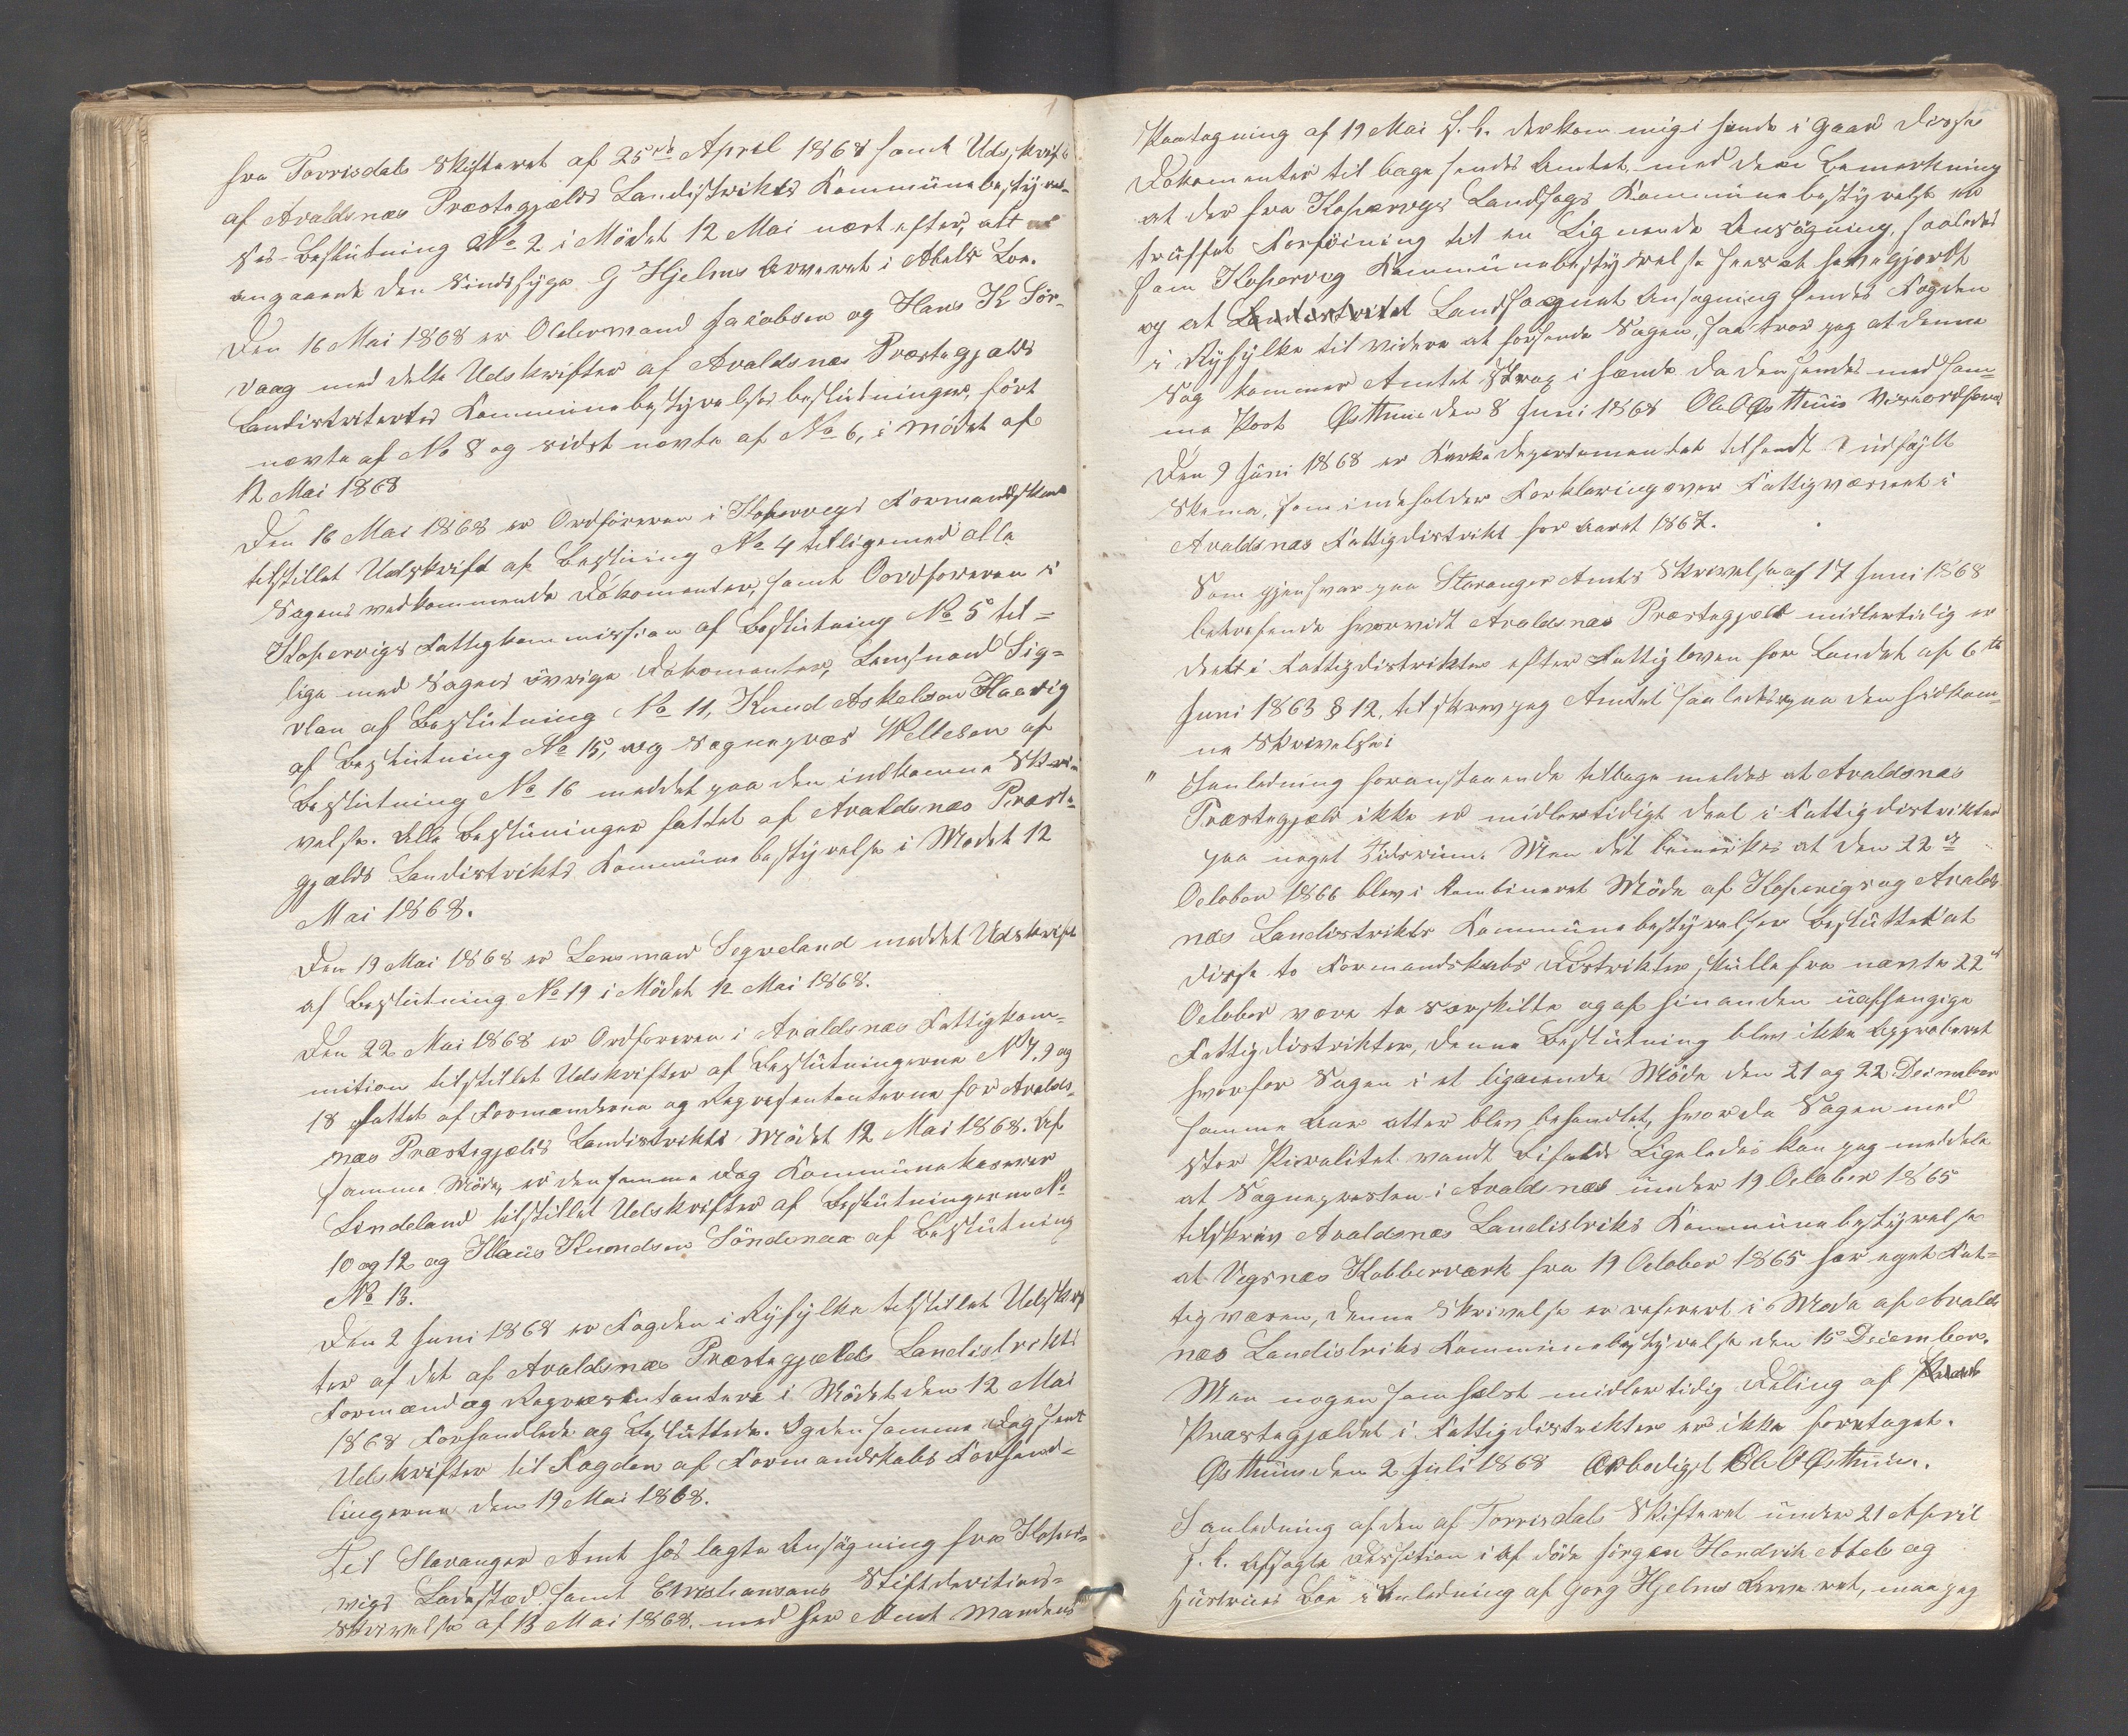 fra Torrisdals Skifteret af 25de April 1868 samt Udskrift
af Avaldsnæs Præstegjælds Landistrikts Kommünebestyrel-
ses-Beslütning No 2 i Mödet 12 Mai næst efter, alt
angaaende den Sindssyge G Hjelms Arveret i Abels Boe.
Den 16 Mai 1868 er Oldermand Jacobsen og Hans K Sör-
vaag meddelte Udskrifter af Avaldsnæs Præstegjælds
Landistrikts Kommünebestyrelses beslütninger, först
nevte af No 8 og sidst nevte af No 6, i Mödet af
12 Mai 1868
Den 16 Mai 1868 er Ordföreren i Kopervigs Formandskab
tilstillet Udskrift af Beslüning No 4 tilligemed alle
Sagens vedkommende Dokomenter, samt Oordföreren i
Kopervigs Fattigkommission af Beslütning No 5 til=
lige med Sagens övrige Dokomenter, Lensmand Sig=
vlan af Beslütning No 11, Knud Askelsen Haavig
af Beslütning No 15, og Sognepræs Wellesen af
Beslütning No 16 meddelt paa den indkomne Skri
velse. Alle Beslüninger fattet af Avaldsnæs Præste=
gjælds Landistrikts Kommünebestyrelse i Mödet 12
Mai 1868.
Den 19 Mai 1868 er Lensmand Segveland meddelt Udskrift
af Beslütning No 19 i Mödet 12 Mai 1868.
Den 22 Mai 1868 er Ordföreren i Avaldsnæs Fattigkom=
mition tilstillet Udskrifter af Beslütningerne N 7, 9 og
18 fattet af Formændene og Repræsentanterne for Avalds-
næs Præstegjælds Landistrikts Mödet 12 Mai 1868. Af
samme Möde er den samme Dag Kommünekaserer
Lindeland tilstillet Udskrifter af Beslütningerne No
10 og 12 og Klaüs Knundsen Söndenaa af Beslütning
No 13.
Den 2 Juni 1868 er Fogden i Ryfylke tilstillet Udskrif
ter af det af Avaldsnæs Præstegjælds Landistrikts
Formænd og Repræsentantere i Mödet den 12 Mai
1868 Forhandlede og Beslüttede. Og den samme Dag sent
Udskrifter til Fogden af Formandskabs Forhand-
lingerne den 19 Mai 1868.
Til Stavanger Amt hos lagte Ansögning fra Koper-
vigs Ladested samt Christiansans Stiftderitions-
Skrivelse af 13 Mai 1868. med Her Amt Mandens
Paategning af 19 Mai s. A. der kom mig i hende i Gaar disse
Dokomenter til bage sendes Amtet med den Bemærkning
at der fra Kopervigs Landsogs Kommünebestyrelse er
truffet Forföining til en Lignende Ansögning, saaledes
som Kopervig Kommünebestyrelse sees at have gjordt
og at Landistritet Landsognet Ansøgning sendes Fogden
i Ryfylke til videre at forsende Sagen, saa tror jeg at denne
Sag kommer Amtet Strax i hænde da den sendes med sam=
me Post Østhuus den 8 Juni 1868 Ole O Østhüüs Viseordförer
Den 9 Jüni 1868 er Kirkedepartementet tilsendt 1 üdfyllt
Skema, som indeholder Forklaring over Fattigvæsenet i
Avaldsnæs Fattigdistrikt for Aaret 1867.
Som gjensvar paa Stavanger Amts Skrivelse af 17 Juni 1868
betrefende hvorvidt Avaldsnæs Præstegjæld midlertidig er
delt i Fattigdistrikter efter Fattigloven for Landet af 6te
Juni 1863 § 12, tilskrev jeg Amtet saaledes paa den hidkom=
ne Skrivelse:
" I anledning foranstaaende tilbage meldes at Avaldsnæs
Præstegjæld ikke er midlertidigt deel i Fattigdistrikter
paa noget Tidsrüm. Men det bemærkes at den 22de
October 1866 blev i kombineret Möde af Kopervigs og Avalds
næs Landistrikts Kommünebestyrelser Beslüttet at
disse to Formandskabs Distrikter skülle fra nævnte 22de
October være to særskilte og af hinanden üafhengige
Fattigdistrikter, denne Beslütning blev ikke Approberet
hvorfor Sagen i et ligeænde Möde den 21 og 22 Decimber
samme Aar atter blev behandlet, hvor da Sagen med
stor Pluralitet vandt Bifald. Ligeledes kan jeg meddele
at Sognepresten i Avaldsnæs ünder 19 October 1865
tilskrev Avaldsnæs Landistriks Kommünebestyrelse
at Vegsnæs Kobberværk fra 19 October 1865 har eget Fat=
tigvæsen, denne Skrivelse er refereret i Möde af Avalds
næs Landistriks Kommünebestyrelse den 15 Deicember.
Men nogen som helst midlertidig Deling af
Præstegjældet i Fattigdistrikter er ikke foretaget.
Østhüüs den 2 Jüli 1868 Ærbødigst Ole O Østhüüs.
I anledning af den af Torrisdals Skifteret ünder 21 April
s. A. afsagte Dessition i Af döde Jörgen Hendrik Abels og
Hüstrües Boe i Anledning af Georg Hjelms Arve ret, maa jeg